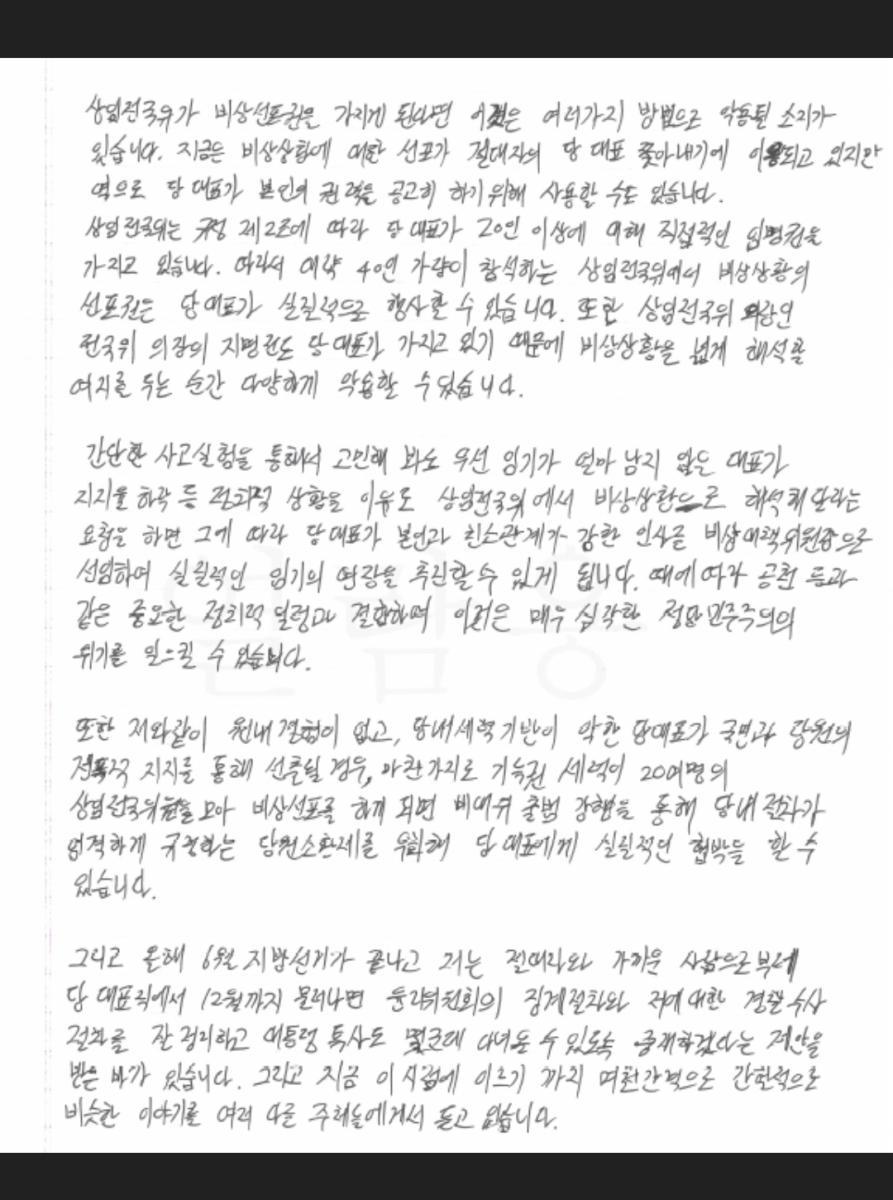 상임전국위가 비상선포권을 가지게 된다면 이것은 여러가지 방법으로 악용될 소지가
있습니다. 지금은 비상상황에 대한 선포가 절대자의 당 대표 쫓아내기에 이용되고 있지만
역으로 당 대표가 본인의 권력을 공고히 하기 위해 사용할 수도 있습니다.
상임전국위는 규정 제2조에 따라 당 대표가 20인 이상에 의해 직접적인 임명권을
가지고 있습니다. 따라서 대략 40인 가량이 참석하는 상임전국위에서 비상상황의
선포권은 당 대표가 실질적으로 행사할 수 있습니다. 또한 상임전국위 의장인
전국위 의장의 지명권도 당 대표가 가지고 있기 때문에 비상상황을 넓게 해석할
여지를 두는 순간 다양하게 악용할 수 있습니다.
간단한 사고실험을 통해서 고민해 봐도 우선 임기가 얼마 남지 않은 대표가
지지율 하락 등 정치적 상황을 이유로 상임전국위에서 비상상황으로 해석해 달라는
요청을 하면 그에 따라 당 대표가 본인과 친소관계가 강한 인사를 비상대책위원장으로
선임하여 실질적인 임기의 연장을 추진할 수 있게 됩니다. 때에 따라 공천 등과
같은 중요한 정치적 일정과 결합하여 이것은 매우 심각한 정당민주주의의
위기를 일으킬 수 있습니다.
또한 저와같이 원내경험이 없고, 당내세력 기반이 약한 당대표가 국민과 당원의
전폭적 지지를 통해 선출될 경우, 마찬가지로 기득권 세력이 20여명의
상임전국위원을 모아 비상선포를 하게 되면 비대위 출범 강행을 통해 당내 절차가
엄격하게 규정하는 당원소환제를 우회해 당 대표에게 실질적인 협박을 할 수
있습니다.
그리고 올해 6월 지방선거가 끝나고 저는 절대자와 가까운 사람으로부터
당 대표직에서 12월까지 물러나면 윤리위원회의 징계절차와 저에 대한 경찰 수사
절차를 잘 정리하고 대통령 특사도 몇군데 다녀올 수 있도록 중재하겠다는 제안을
받은 바가 있습니다. 그리고 지금 이 시점에 이르기 까지 며칠간격으로 간헐적으로
비슷한 이야기를 여러 다른 주체들에게서 듣고 있습니다.
열람용